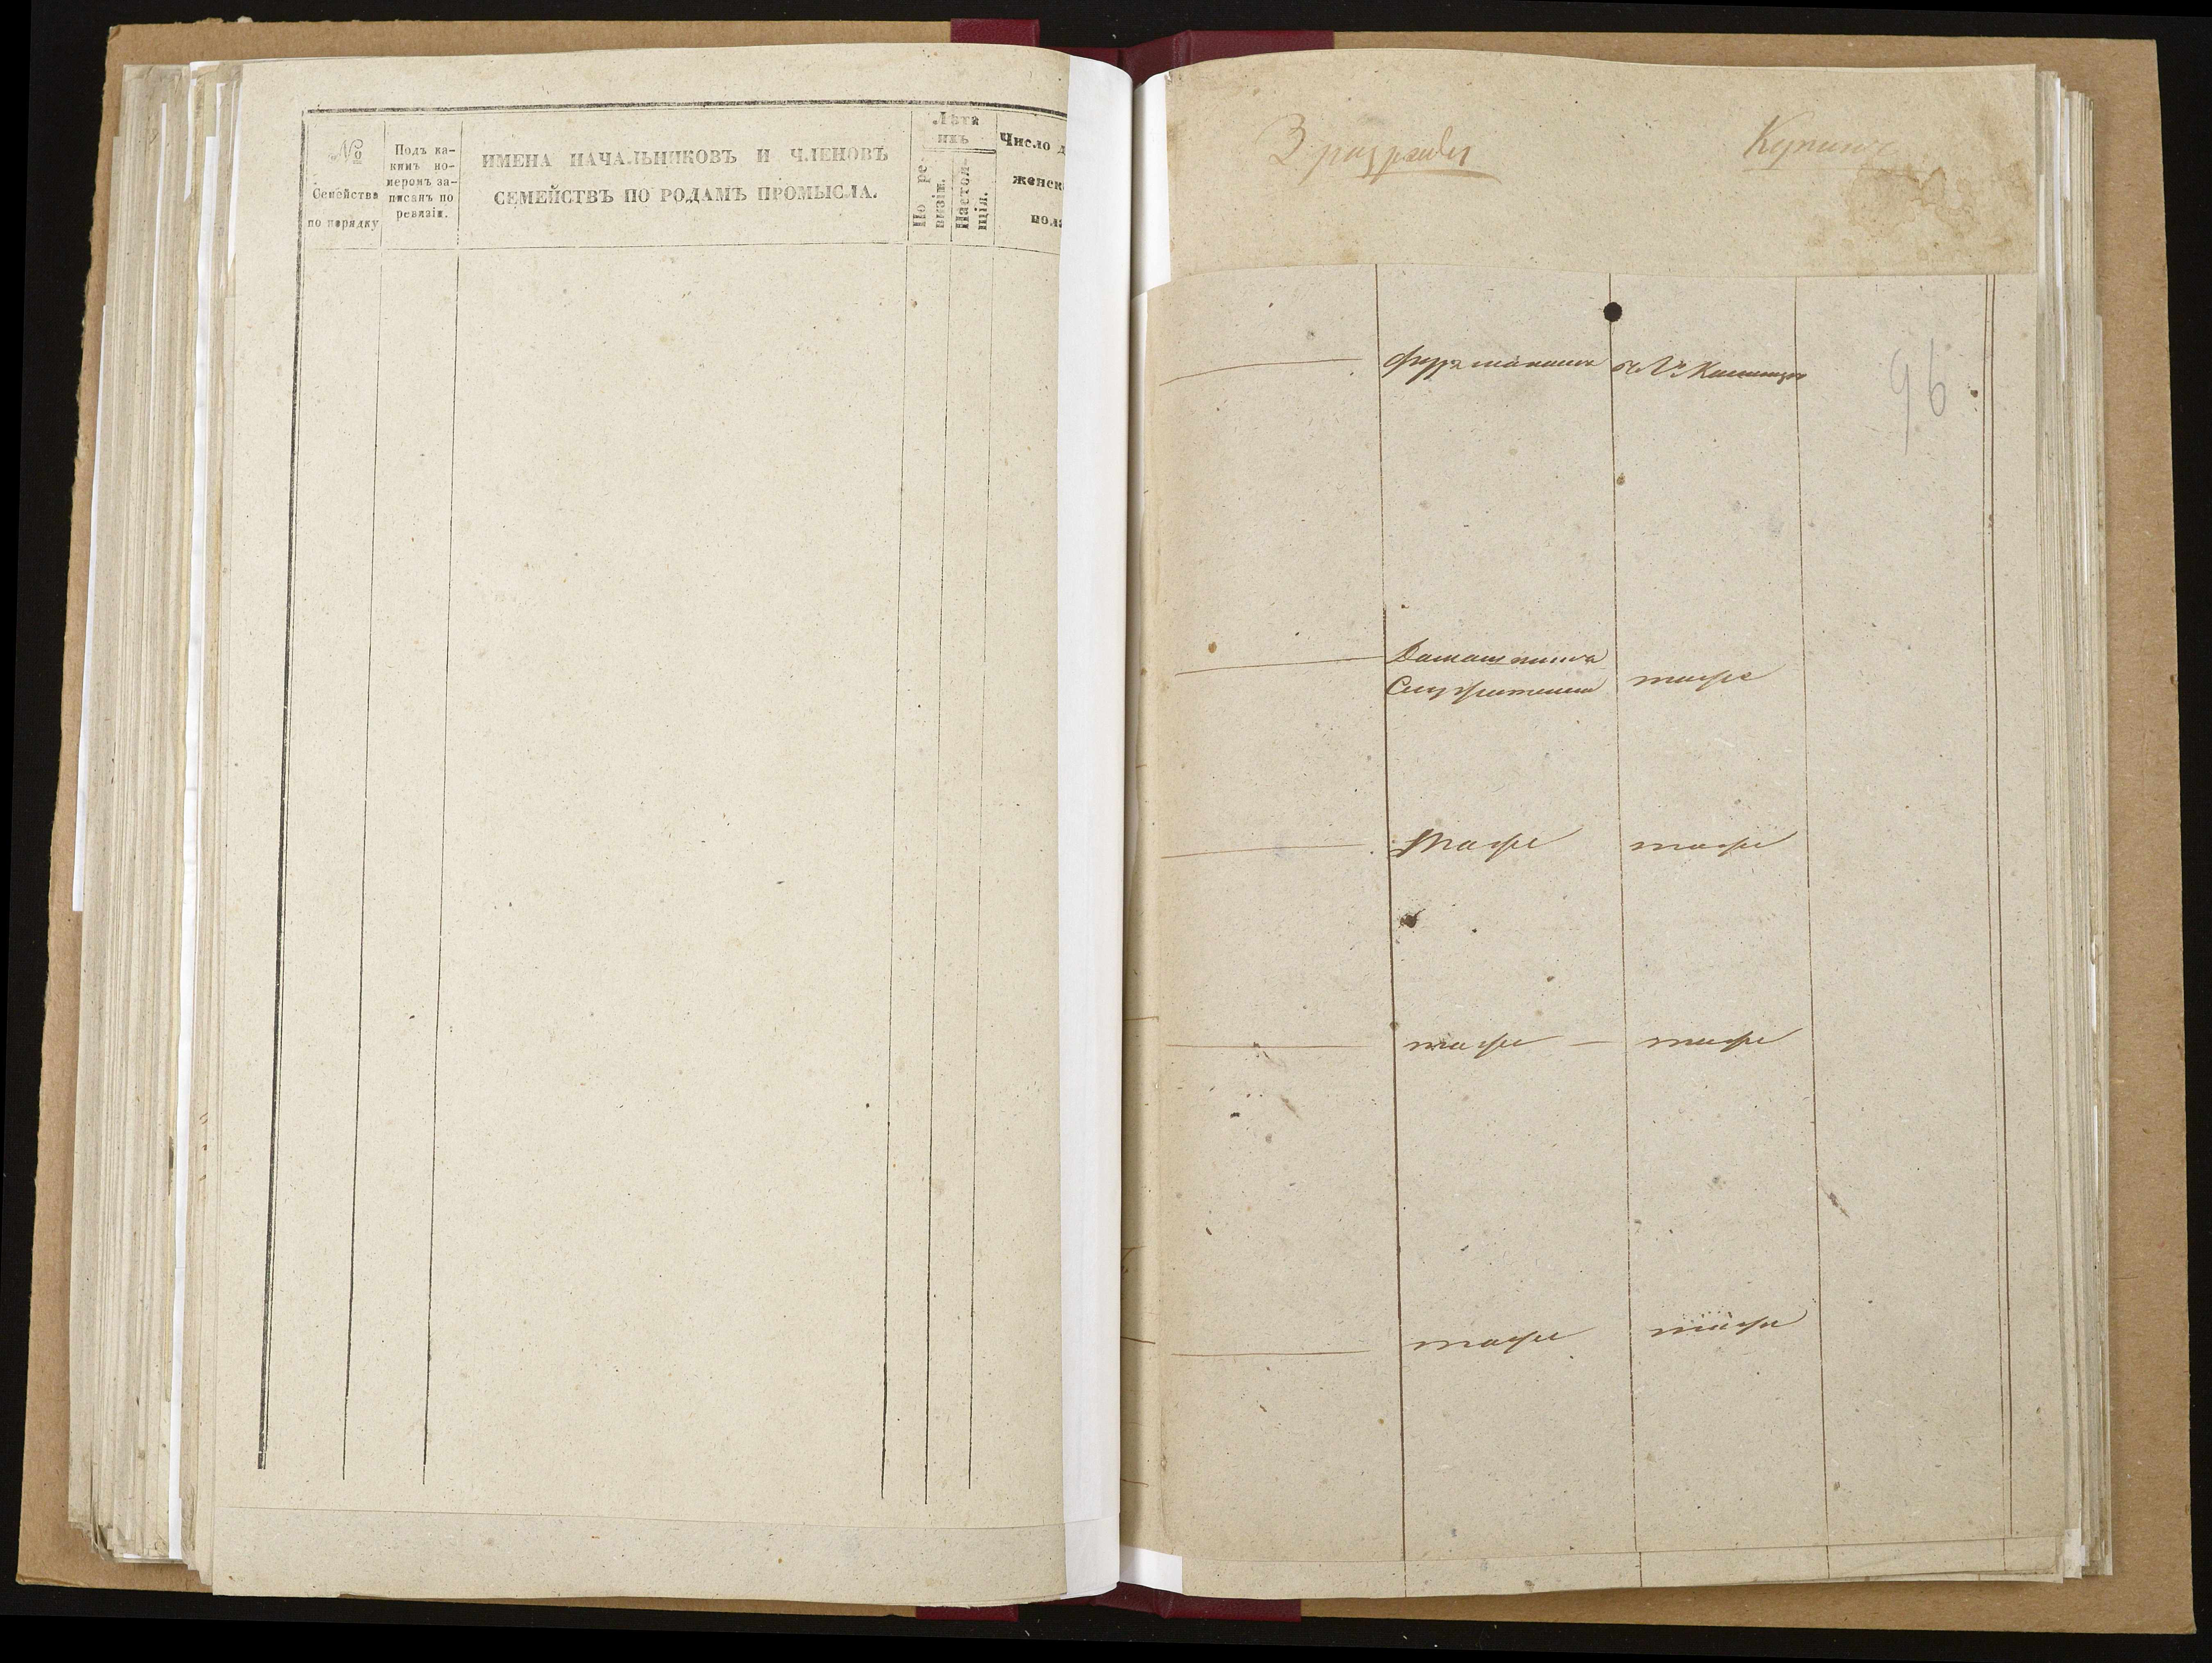 №
Семейства
по порядку
Подъ ка-
кимъ но-
меромъ за-
писанъ по
ревизіи.
ИМЕНА НАЧАЛЬНИКОВЪ И ЧЛЕНОВЪ
СЕМЕЙСТВЪ ПО РОДАМЪ ПРОМЫСЛА.
Лѣта
ихъ
По ре-
визіи.
Настоя-
щія.
Число д
женск
пола
3 разряды
96
Домашнимъ
тоже
тоже
тоже
тоже
тоже
тоже
тоже